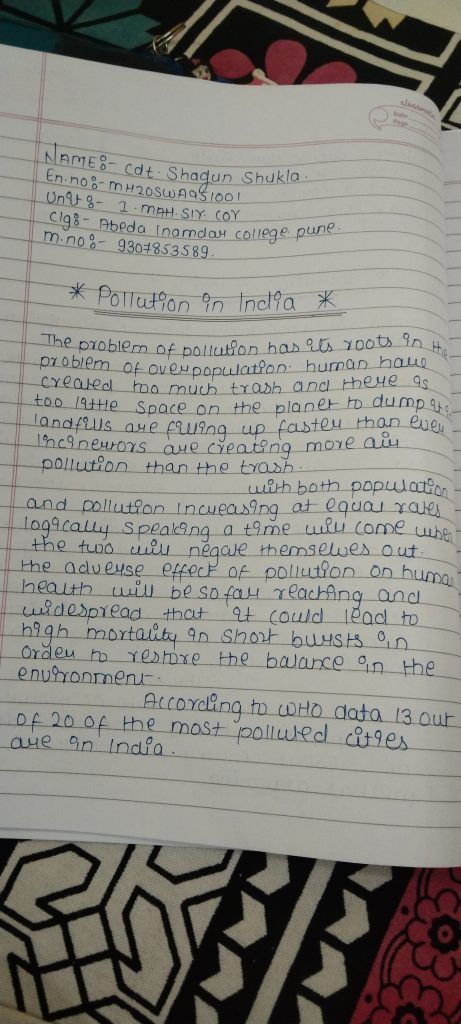 classmate
Date
Page
NAME:- Cdt. Shagun Shukla.
En.no:- MH20SWA951001
Unit:- 1. MAH. SIG. COY
Clg:- Abeda Inamdar College pune.
M.no:- 9307853589.
* Pollution in India *
The problem of pollution has its roots in the
problem of overpopulation. human have
created too much trash and there is
too little space on the planet to dump it
landfills are filling up faster than ever
Incineurors are creating more air
pollution than the trash.
with both population
and pollution increasing at equal rates
logically speaking a time will come when
the two will negate themselves out.
the adverse effect of pollution on human
health will be so far reaching and
widespread that it could lead to
high mortality in short bursts in
order to restore the balance in the
environment.
According to WHO data 13 out
of 20 of the most polluted cities
are in India.